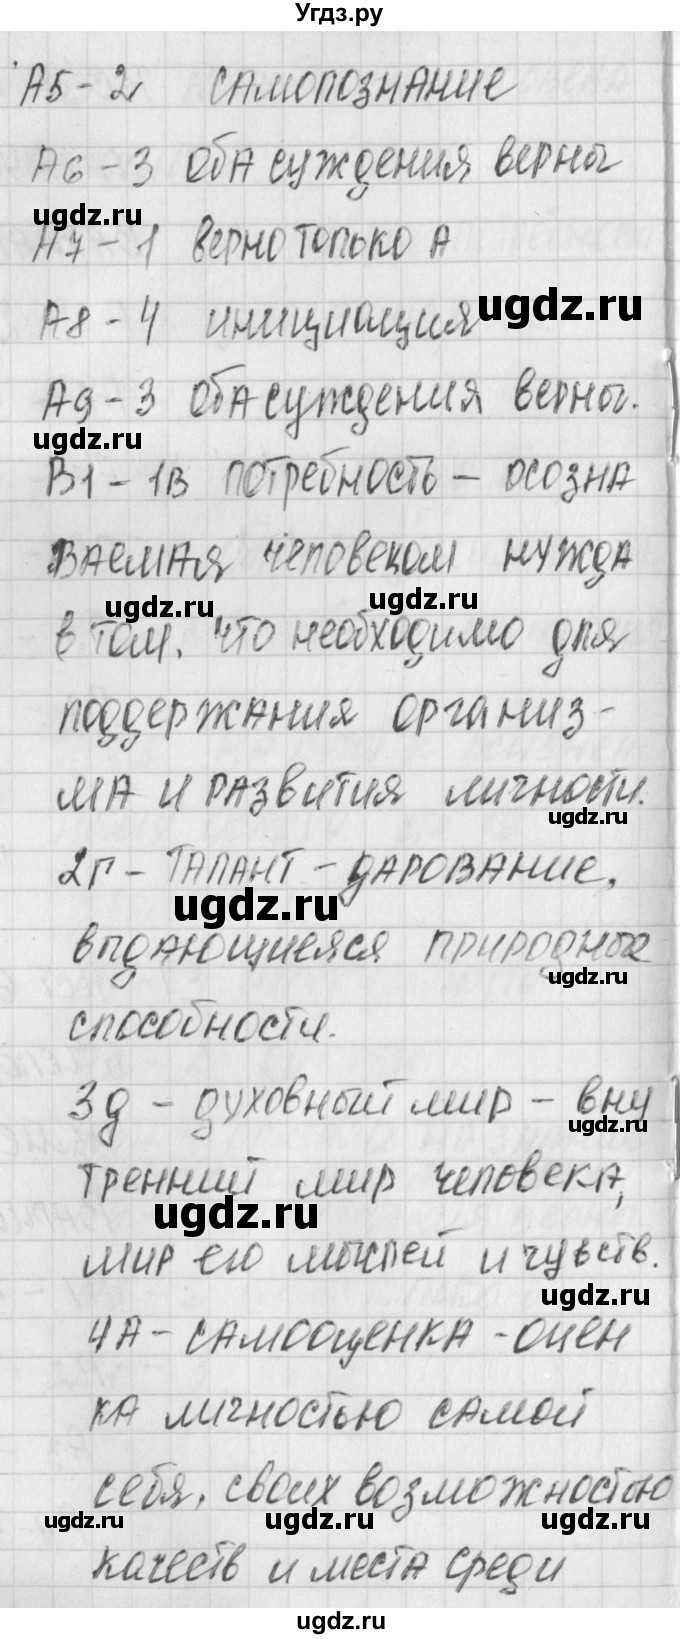 Угдз.ру
А5 - 2 самопознание
А6 - 3 оба суждения верны
ugdz.ru
А7 - 1 верно только А
ugdz.ru
А8 - 4 инициация
А9 - 3 оба суждения верны.
ugdz.ru
В1 - 1в потребность - осозна
ваемая человеком нужда
ugdz.ru ugdz.ru
в том, что необходимо для
поддержания организ-
ма и развития личности.
ugdz.ru
2г - талант - дарование,
ugdz.ru
выдающиеяся природные
ugdz.ru
способности.
3д - духовный мир - вну
ugdz.ru
тренний мир человека,
ugdz.ru
мир его мыслей и чувств.
ugdz.ru
4А - самооценка - оцен
ка личностью самой
себя, своих возможностью
ugdz.ru ugdz.ru ugdz.ru
качеств и места среди
ugdz.ru